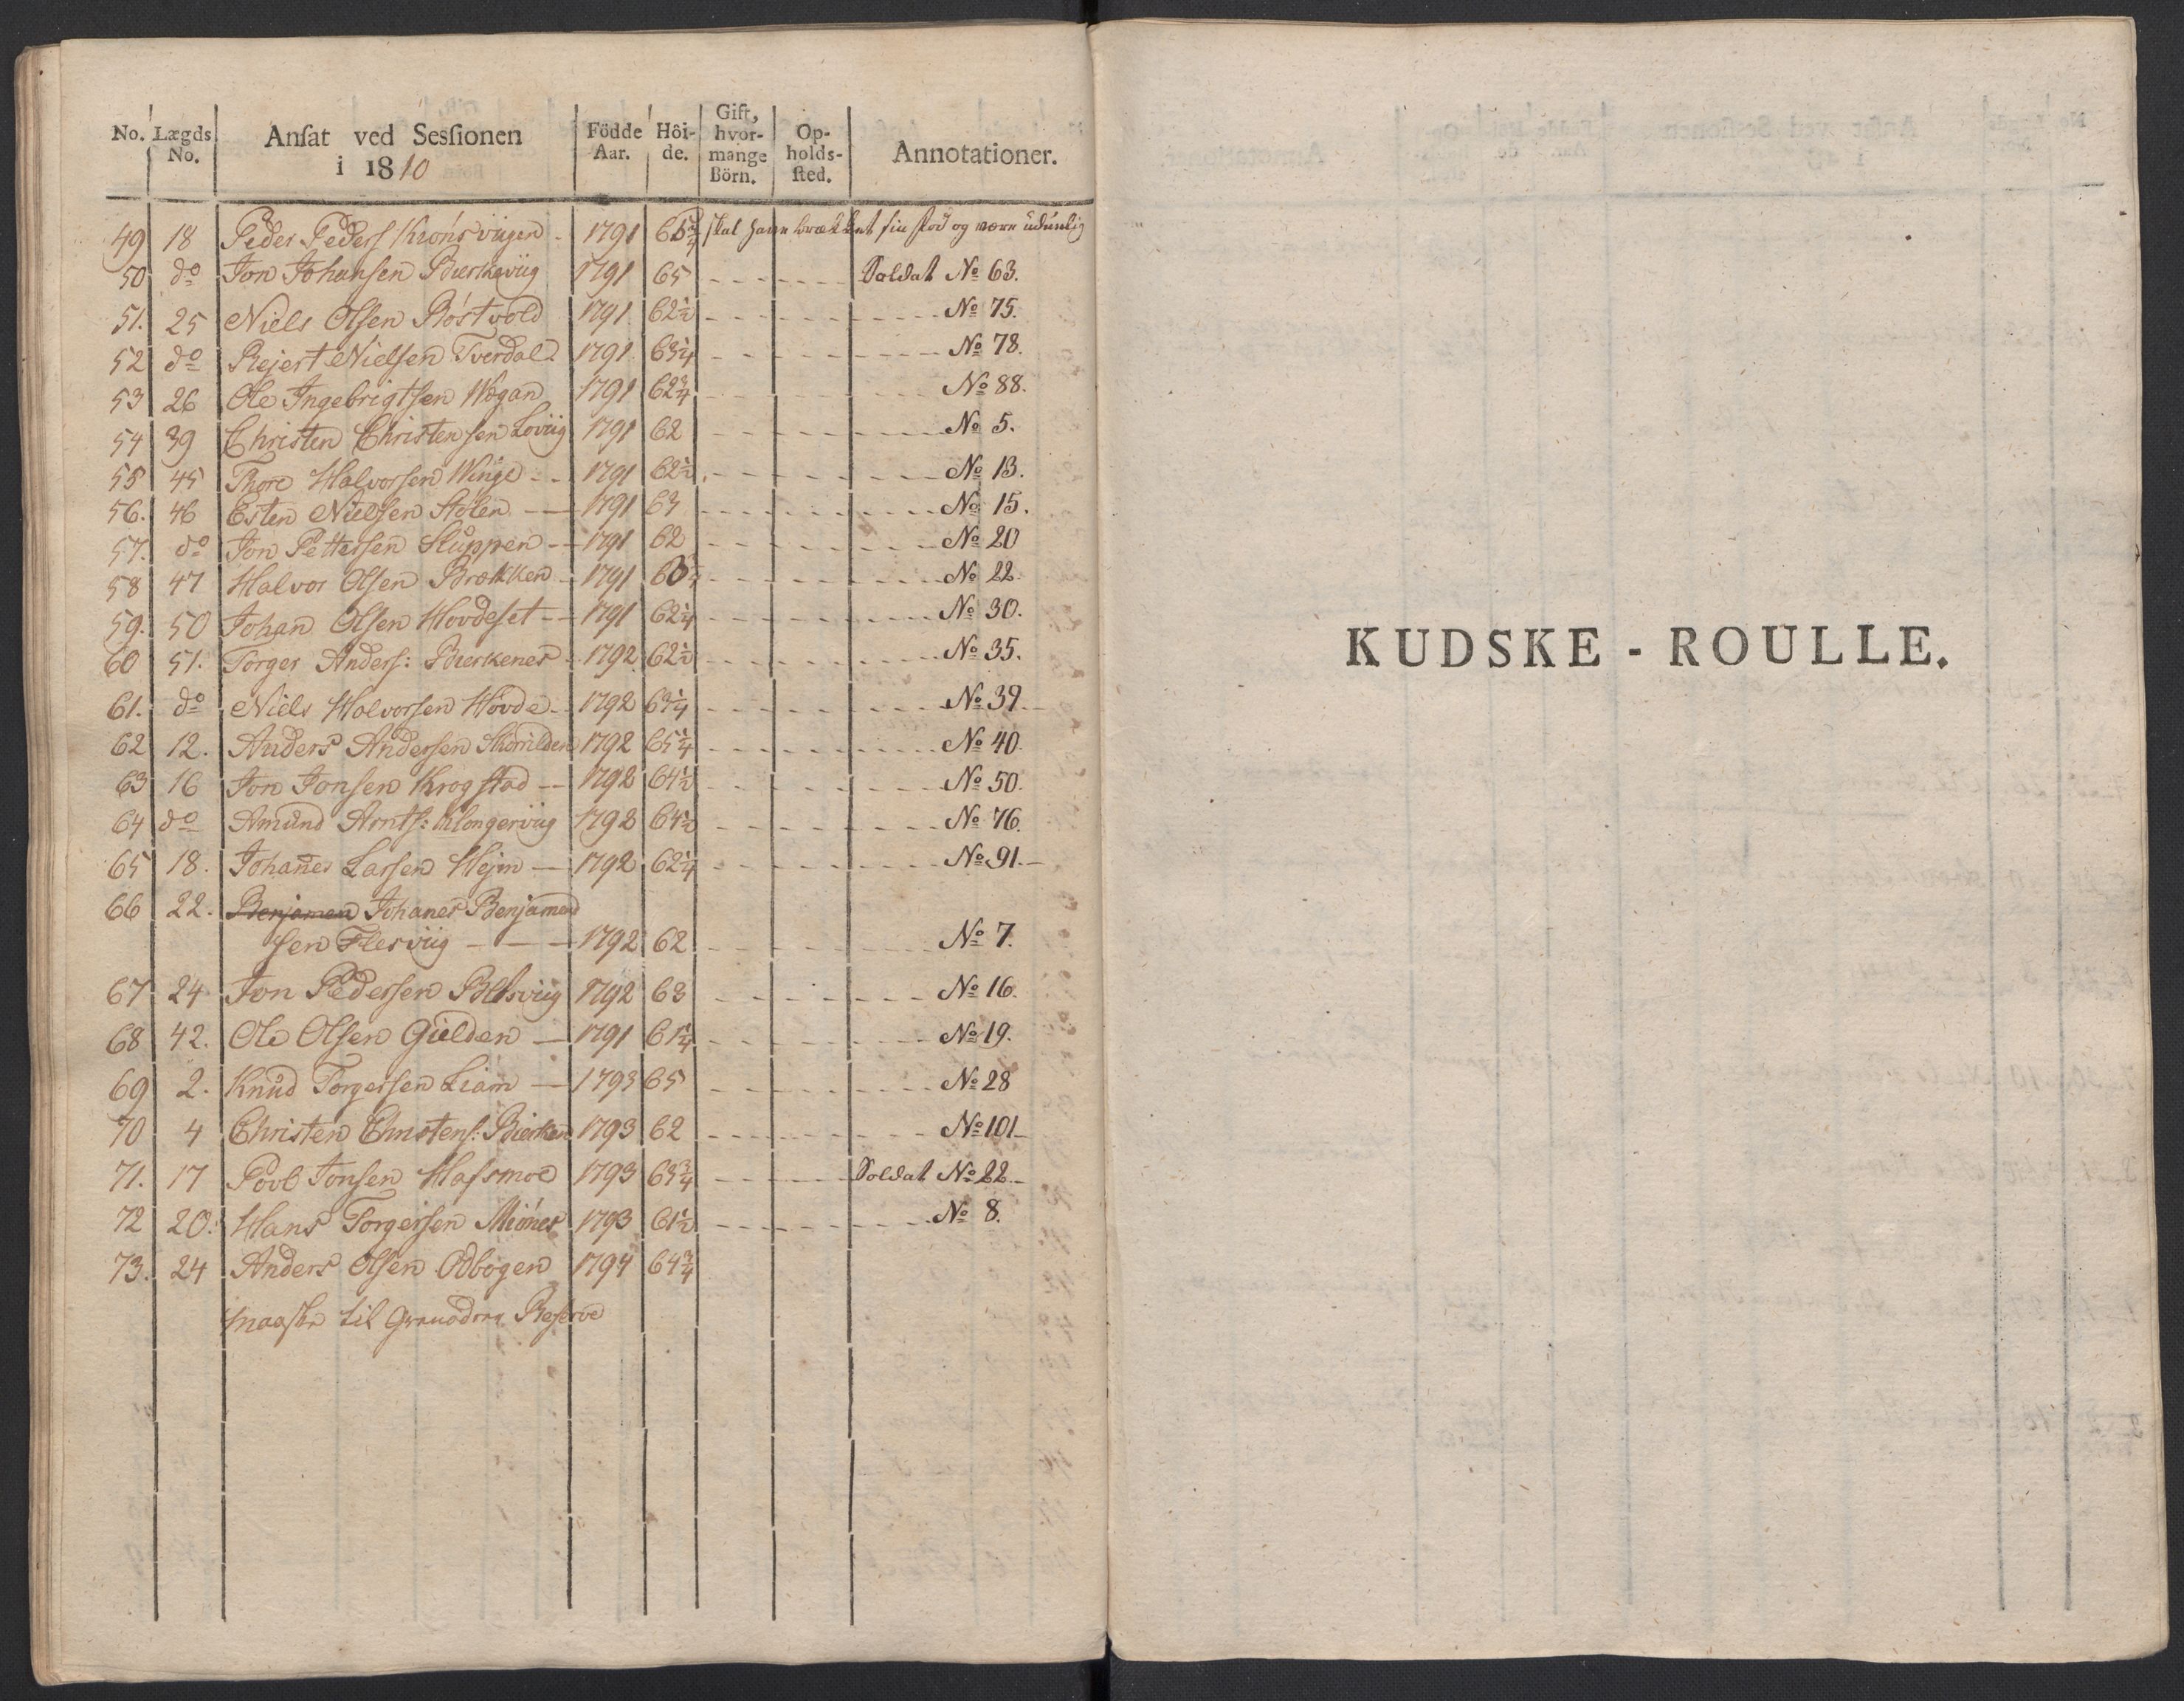 No. Lægds No. Anſat ved Seſſionen i 1810 Födde Aar. Höi-de. Gift, hvor-mange Börn. Op-holds-ſted. Annotationer.
49 18 Peder Peders Kronsviigen - 1791 65 3/4 skal have brækket sin fod og være udulig
50 do Jon Johansen Bierkeviig 1791 65 - - - Soldat No 63.
51. 25 Niels Olsen Röstvold 1791 62 1/2 - - - No 75.
52 do Rejert Nielsen Tverdal 1791 63 1/4 - - - No 78.
53 26 Ole Ingebrigtsen Wogan 1791 62 3/4 - - - No 88.
54 39 Christen Christensen Loviig 1791 62 - - - No 5.
55 45 Thore Halvorsen Winge - - 1791 62 1/2 - - - No 13.
56. 46 Esten Nielsen Stölen - - 1791 63 - - - No 15.
57. do Jon Pettersen Sluppen - - 1791 62 - - - No 20
58 47 Halvor Olsen Brækken - 1791 - - - No 22.
59. 50 Johan Olsen Hovdeset - - 1791 62 1/4 - - - No 30.
60 51. Torger Anders: Bierkenes - 1792 62 1/2 - - - No 35.
61. do Niels Halvorsen Hovde - 1792 63 1/4 - - - No 39.
62 12. Anders Andersen 1792 65 1/4 - - - No 40.
63 16 Jon Jonsen Krogstad - - 1792 64 1/2 - - - No 50.
64 do Amund Arnts: Klongerviig 1792 64 1/2 - - - No 76.
65 18. Johanes Larsen Hejm - 1792 62 1/4 - - - No 91.-
66 22. Benjamen Johanes Benjamend
sen Flesviig - - - 1792 62 - - - No 7.
67 24 Jon Pedersen 1792 63 - - - No 16.
68 42. Ole Olsen Gielden - 1791 61 1/4 - - - No 19.
69 2. Knud Torgersen Liam - 1793 65 - - - No 28
70 4 Christen Christens: Bierken 1793 62 - - - No 101-
71. 17 Povl Jonsen Hafsmoe 1793 63 3/4 - - - Soldat No 22.-
72 20. Hans Torgersen Miönes 1793 61 1/2 - - - No 8.
73. 24 Anders Olsen Odbogen 1794 64 3/4
maaske til Reserve
KUDSKE - ROULLE.